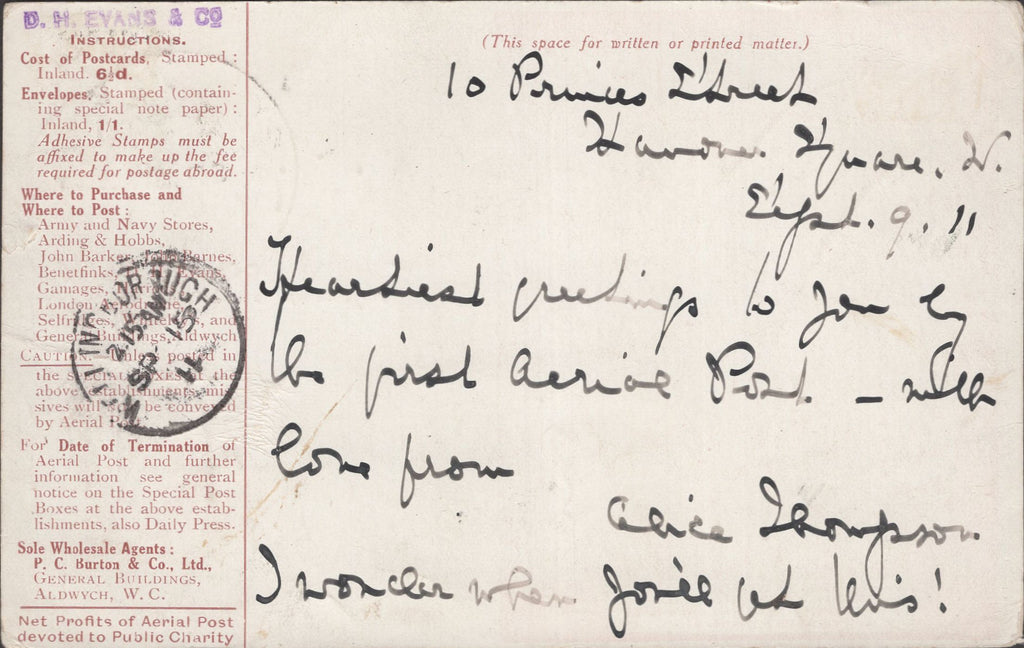 D. H. EVANS & CO
INSTRUCTIONS.
Cost of Postcards, Stamped:
Inland. 6½d.
Envelopes, Stamped (contain-
ing special note paper):
Inland, 1/1.
Adhesive Stamps must be
affixed to make up the fee
required for postage abroad.
Where to Purchase and
Where to Post:
Army and Navy Stores,
Arding & Hobbs,
John Barker, John Barnes,
Benetfinks, Evans,
Gamages,
London Aerodrome,
Selfridges, Whiteleys, and
General Buildings, Aldwych
CAUTION.—Unless posted in
the SPECIAL BOXES at the
above establishments, mis-
sives will not be conveyed
by Aerial Post.
For Date of Termination of
Aerial Post and further
information see general
notice on the Special Post
Boxes at the above estab-
lishments, also Daily Press.
Sole Wholesale Agents:
P. C. Burton & Co., Ltd.,
GENERAL BUILDINGS,
ALDWYCH, W. C.
Net Profits of Aerial Post
devoted to Public Charity
WELLINGBOROUGH
2.15 AM
SP 15
11
(This space for written or printed matter.)
10 Princes Street
Hanover Square. W.
Sept. 9. 11
Heartiest greetings to you by
the first Aerial Post. — with
love from
Alice Thompson.
I wonder when you'll get this!